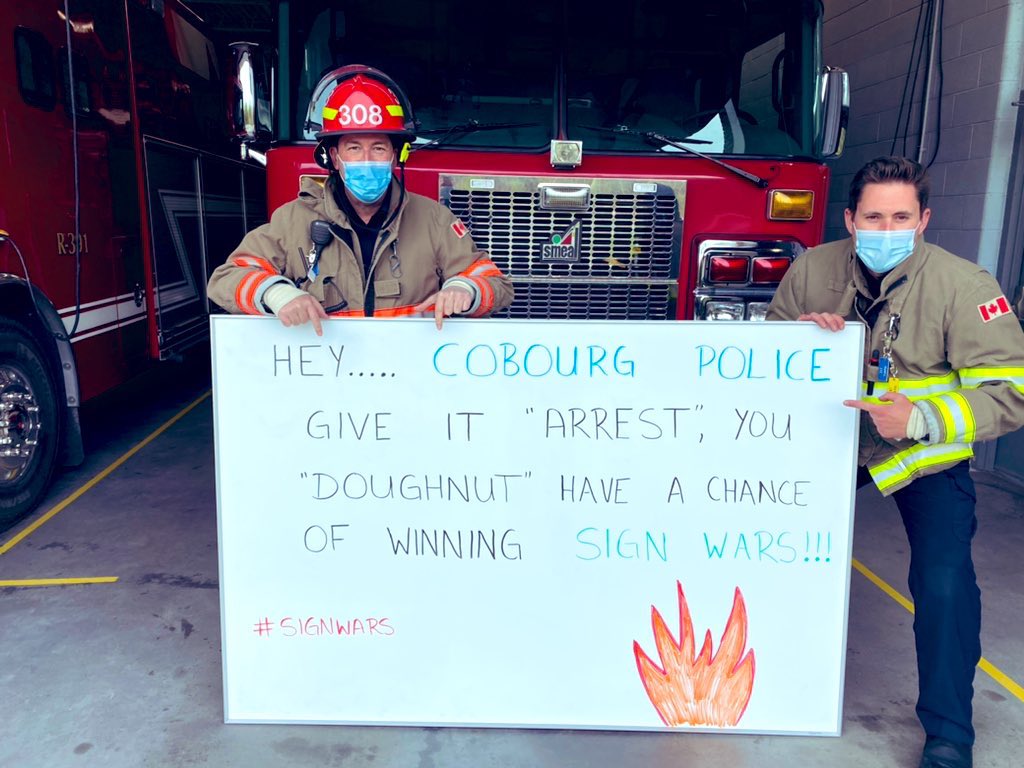 308
R-301
smeal
HEY..... COBOURG POLICE
GIVE IT "ARREST", YOU
"DOUGHNUT" HAVE A CHANCE
OF WINNING SIGN WARS!!!
#SIGNWARS